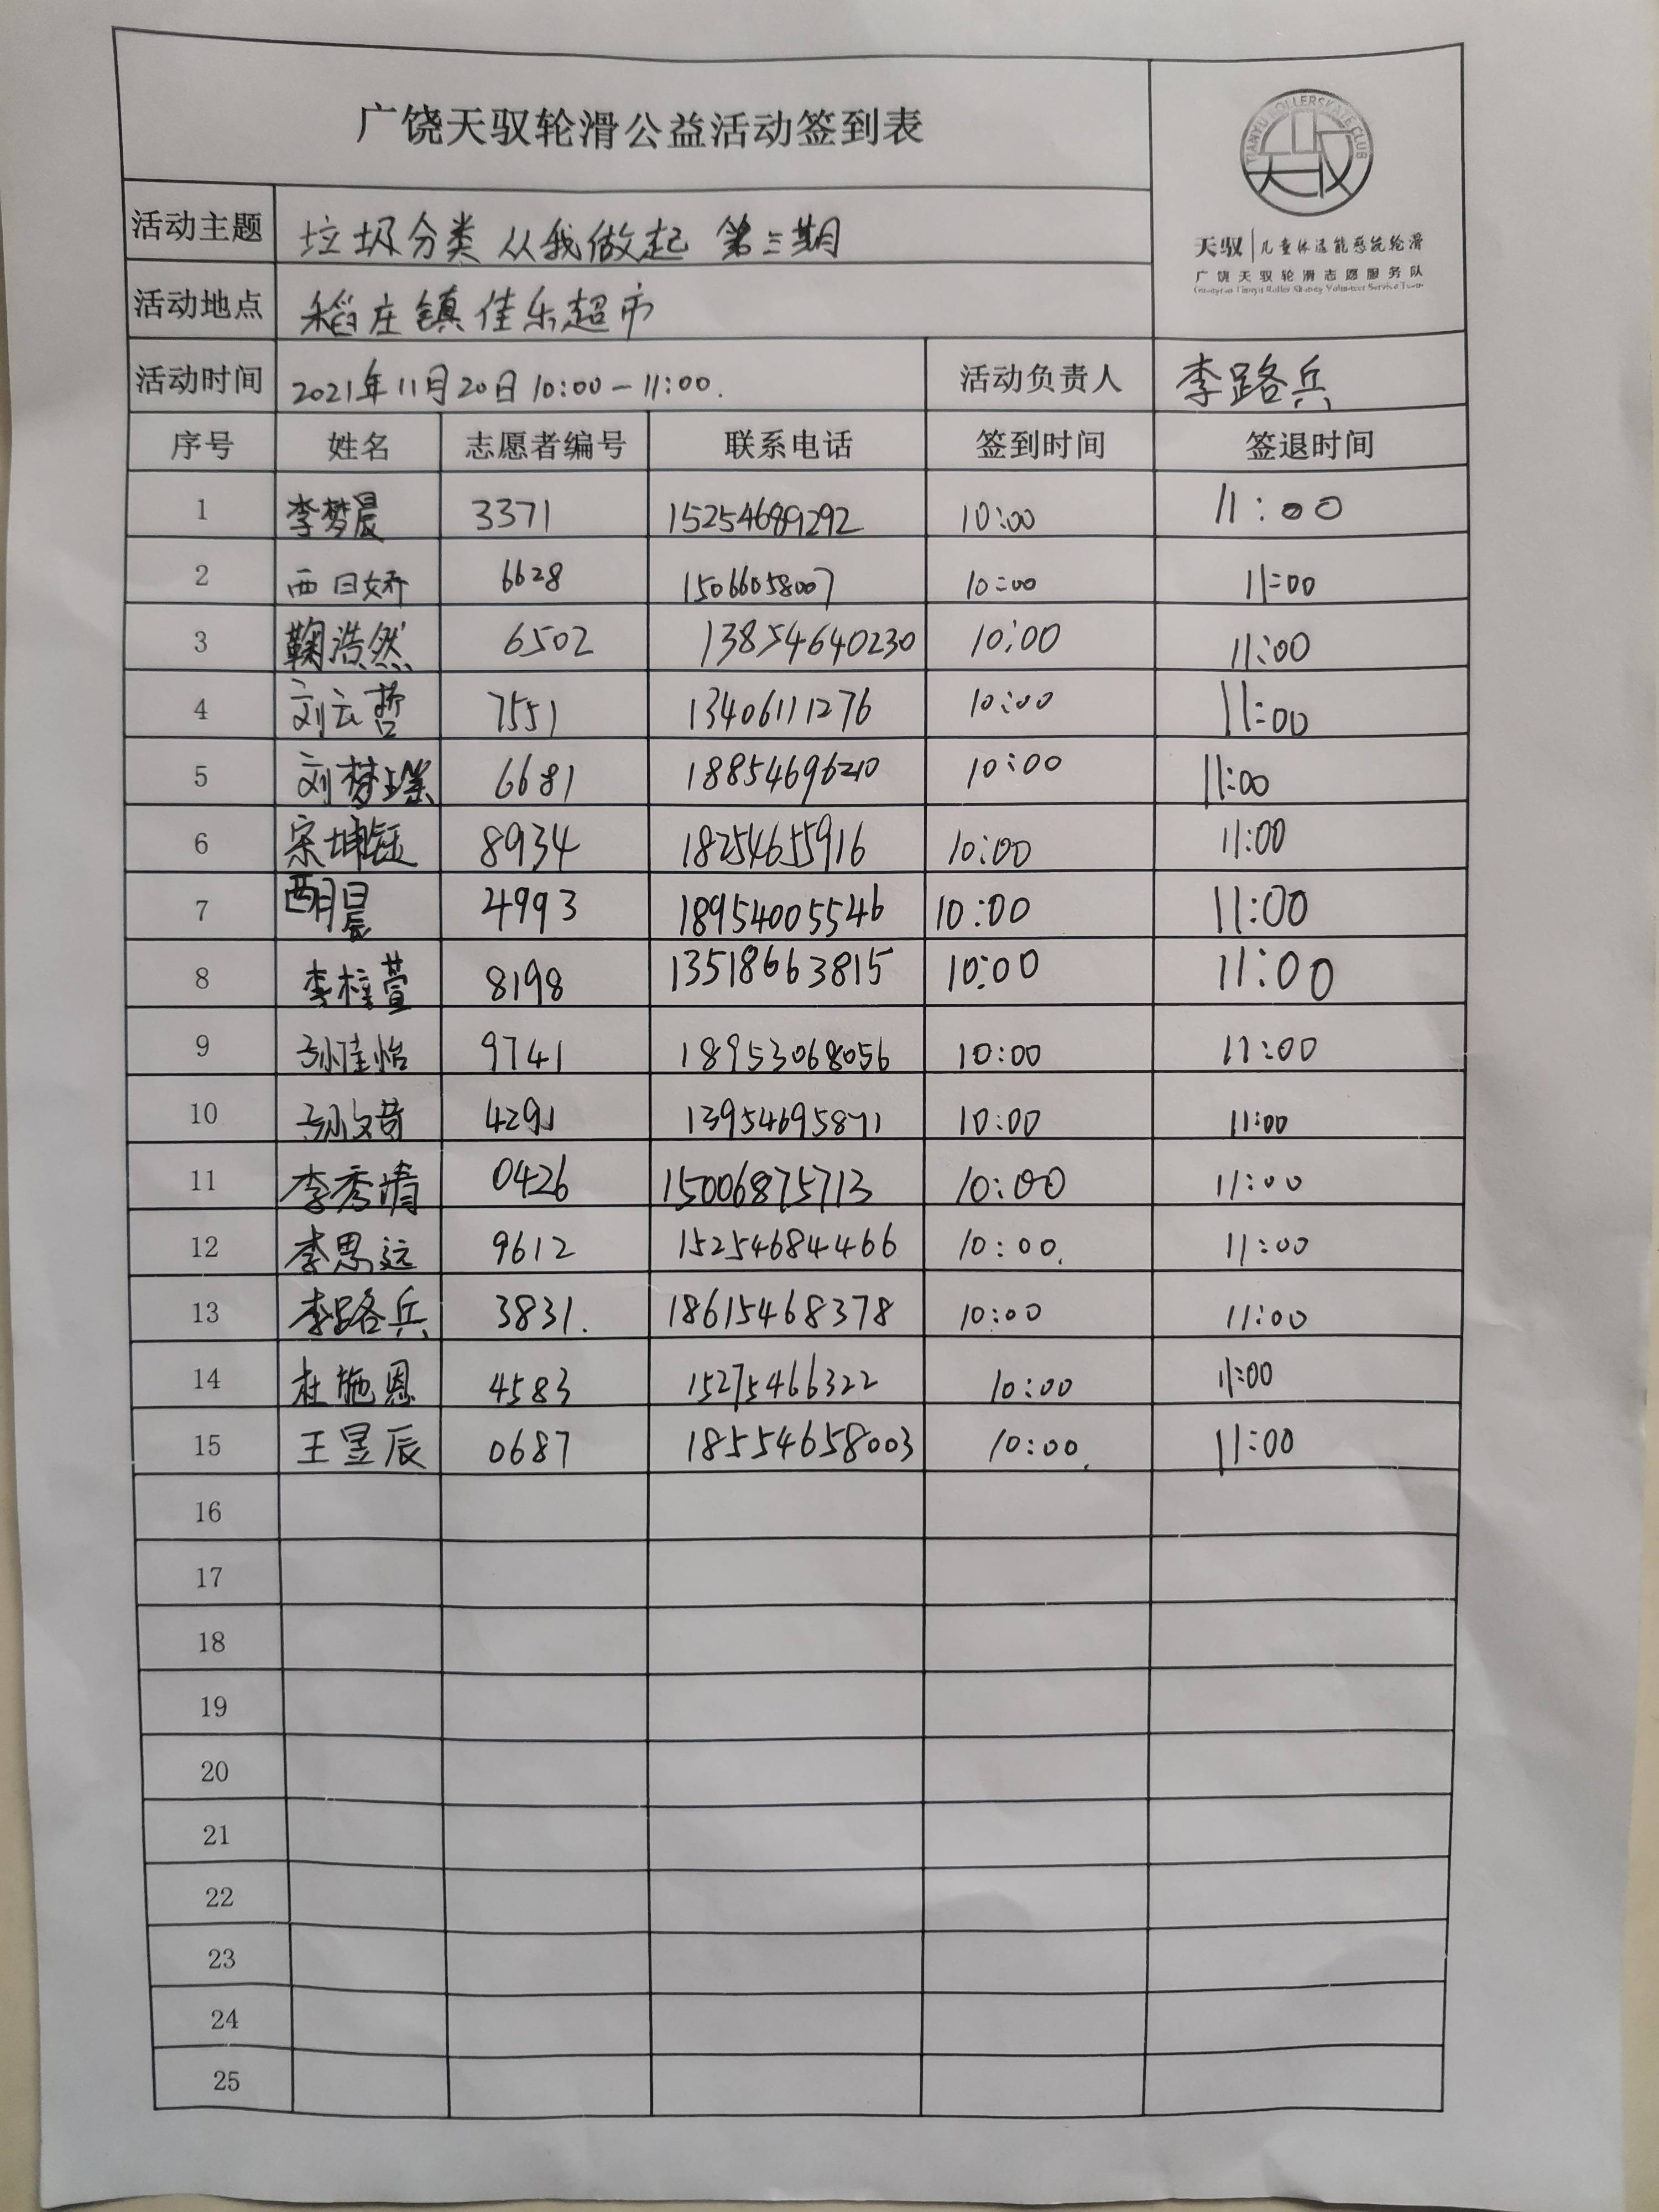 广饶天驭轮滑公益活动签到表
TIANYU ROLLERSKATE CLUB
天驭
天驭 儿童体适能惑统轮滑
广饶天驭轮滑志愿服务队
活动主题 垃圾分类 从我做起 第三期
活动地点 稻庄镇佳乐超市
活动时间 2021年11月20日10:00-11:00. 活动负责人 李路兵
序号 姓名 志愿者编号 联系电话 签到时间 签退时间
1 李梦晨 3371 15254689292 10:00 11:00
2 西日娇 6628 15066058007 10:00 11:00
3 鞠浩然 6502 13854640230 10:00 11:00
4 刘云哲 7551 13406111276 10:00 11:00
5 刘梦瑶 6681 18854696210 10:00 11:00
6 宋坤钰 8934 18254655916 10:00 11:00
7 4993 18954005546 10:00 11:00
8 李梓萱 8198 13518663815 10:00 11:00
9 孙佳怡 9741 18953068056 10:00 11:00
10 4291 13954695871 10:00 11:00
11 李秀清 0426 15006875713 10:00 11:00
12 李思远 9612 15254684466 10:00. 11:00
13 李路兵 3831. 18615468378 10:00 11:00
14 杜施恩 4583 15275466322 10:00 11:00
15 王昱辰 0687 18554658003 10:00. 11:00
16
17
18
19
20
21
22
23
24
25